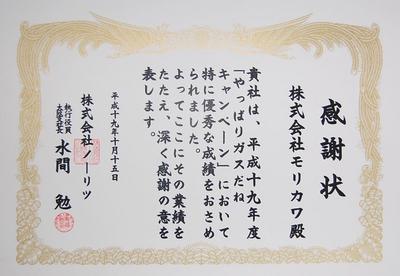 感謝状
株式会社モリカワ殿
貴社は、平成十九年度
「やっぱりガスだね
キャンペーン」において
特に優秀な成績をおさめ
られました。
よってここにその業績を
たたえ、深く感謝の意を
表します。
平成十九年十月十五日
株式会社ノーリツ
執行役員
水間 勉